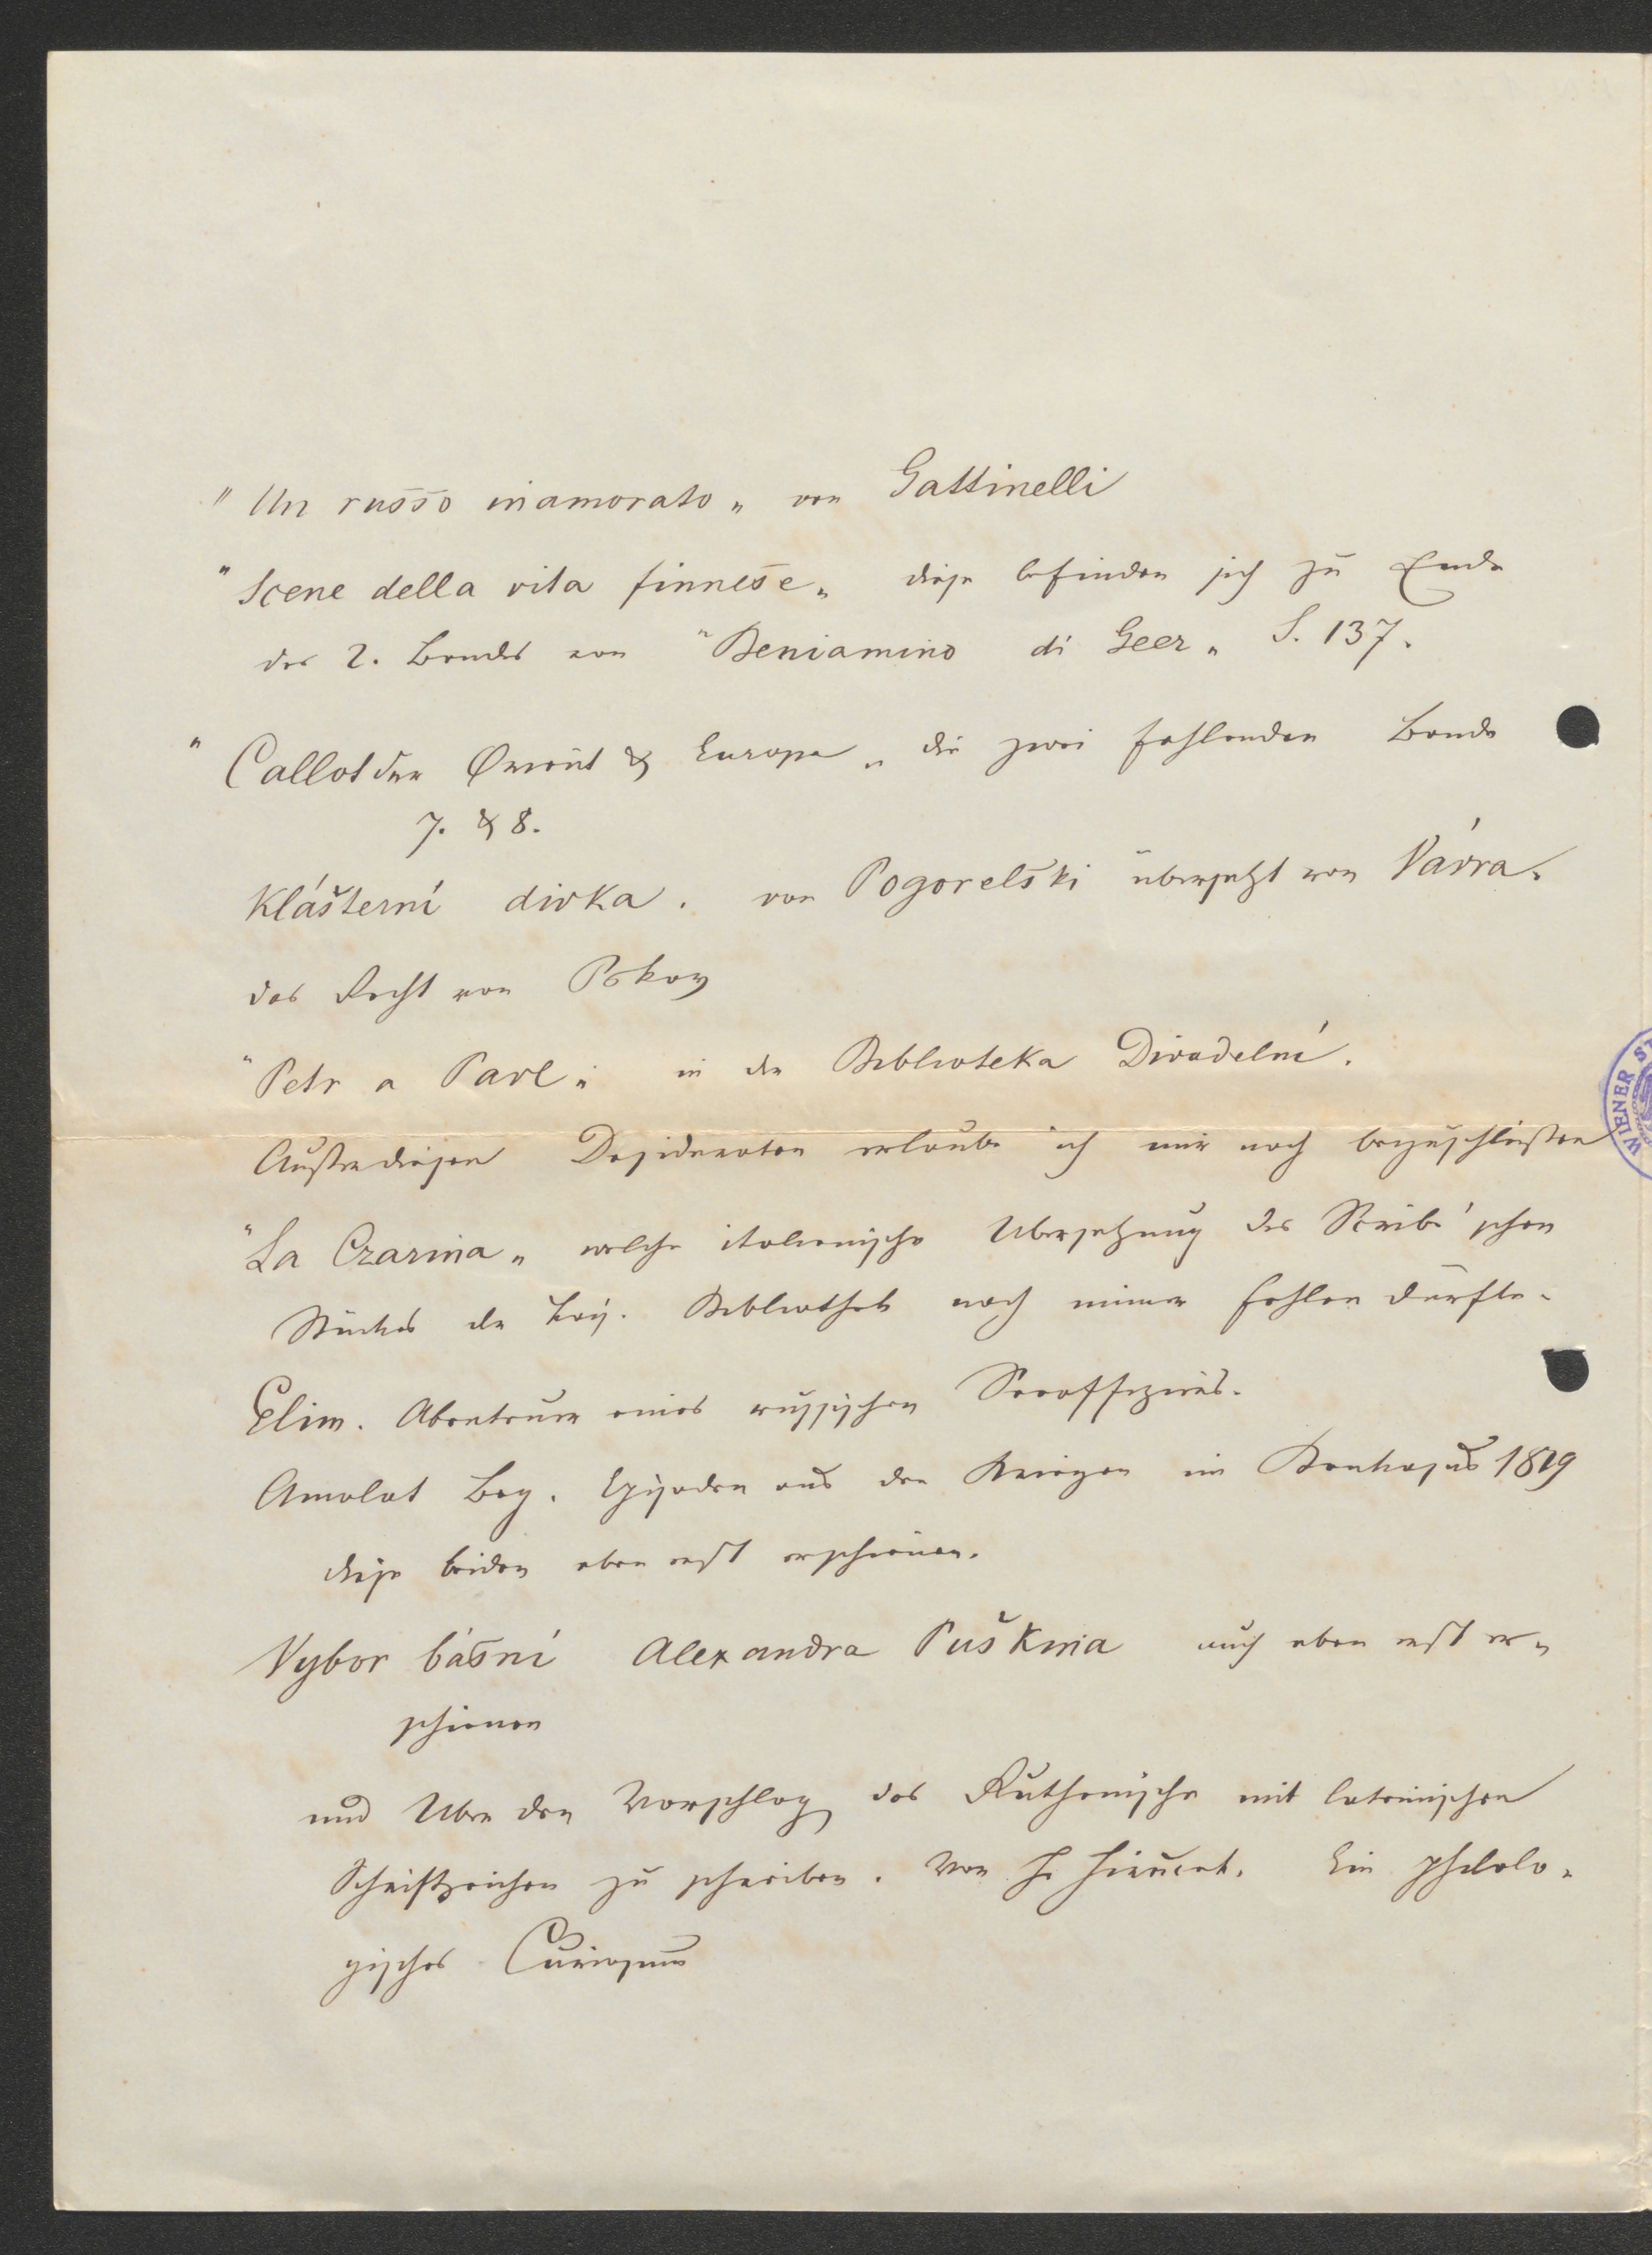 "Un russo inamorato" von Gattinelli
"Scene della vita finnese" diese befinden sich zu Ende
des 2. Bandes von "Beniamino di Geer" S. 137.
"Callot der Orient & Europa" die zwei fehlenden Bände
7. & 8.
Klášterní divka. von Pogorelski übersetzt von Vávra.
das Recht von Pskow
"Petr a Pavl" in der Biblioteka Divadelní.
Außer diesen Desideraten erlaube ich mir noch beizuschließen
"La Czarina" welche italienische Übersetzung des Scribe'schen
Stückes der kais. Bibliothek noch immer fehlen dürfte.
Elim. Abenteuer eines russischen Seeoffiziers.
Amalat Beg. Episoden aus den Kriegen im Kaukasus 1819
diese beiden eben erst erschienen.
Vybor básní Alexandra Puškina auch eben erst er-
schienen
und Über den Vorschlag das Ruthenische mit lateinischen
Schriftzeichen zu schreiben. Von Ein philolo-
gisches Curiosum
WIENER ST